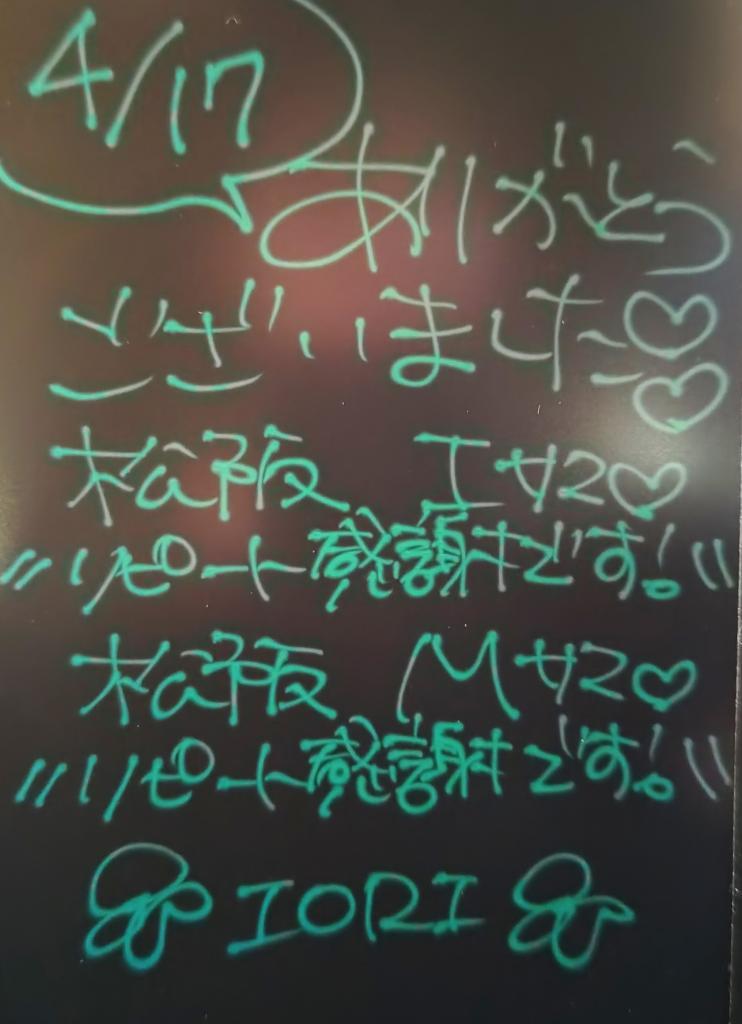 4/17
ありがとう
ございました♡♡
松阪 Iサマ♡
リピート感謝です!
松阪 Mサマ♡
リピート感謝です!
IORI